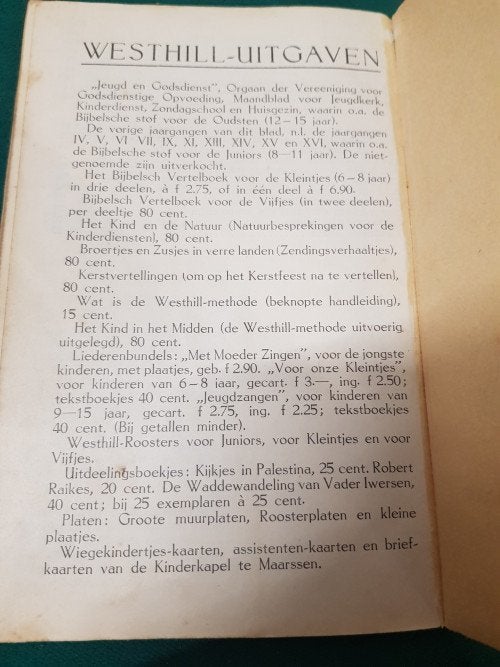 WESTHILL-UITGAVEN
„Jeugd en Godsdienst", Orgaan der Vereeniging voor
Godsdienstige Opvoeding, Maandblad voor Jeugdkerk,
Kinderdienst, Zondagschool en Huisgezin, waarin o.a. de
Bijbelsche stof voor de Oudsten (12—15 jaar).
De vorige jaargangen van dit blad, n.l. de jaargangen
IV, V, VI VII, IX, XI, XIII, XIV, XV en XVI, waarin o.a.
de Bijbelsche stof voor de Juniors (8—11 jaar). De niet-
genoemde zijn uitverkocht.
Het Bijbelsch Vertelboek voor de Kleintjes (6—8 jaar)
in drie deelen, à f 2.75, of in één deel à f 6.90.
Bijbelsch Vertelboek voor de Vijfjes (in twee deelen),
per deeltje 80 cent.
Het Kind en de Natuur (Natuurbesprekingen voor de
Kinderdiensten), 80 cent.
Broertjes en Zusjes in verre landen (Zendingsverhaaltjes),
80 cent.
Kerstvertellingen (om op het Kerstfeest na te vertellen),
80 cent.
Wat is de Westhill-methode (beknopte handleiding),
15 cent.
Het Kind in het Midden (de Westhill-methode uitvoerig
uitgelegd), 80 cent.
Liederenbundels: „Met Moeder Zingen", voor de jongste
kinderen, met plaatjes, geb. f 2.90. „Voor onze Kleintjes",
voor kinderen van 6—8 jaar, gecart. f 3.—, ing. f 2.50;
tekstboekjes 40 cent. „Jeugdzangen", voor kinderen van
9—15 jaar, gecart. f 2.75, ing. f 2.25; tekstboekjes
40 cent. (Bij getallen minder).
Westhill-Roosters voor Juniors, voor Kleintjes en voor
Vijfjes.
Uitdeelingsboekjes: Kijkjes in Palestina, 25 cent. Robert
Raikes, 20 cent. De Waddewandeling van Vader Iwersen,
40 cent; bij 25 exemplaren à 25 cent.
Platen: Groote muurplaten, Roosterplaten en kleine
plaatjes.
Wiegekindertjes-kaarten, assistenten-kaarten en brief-
kaarten van de Kinderkapel te Maarssen.